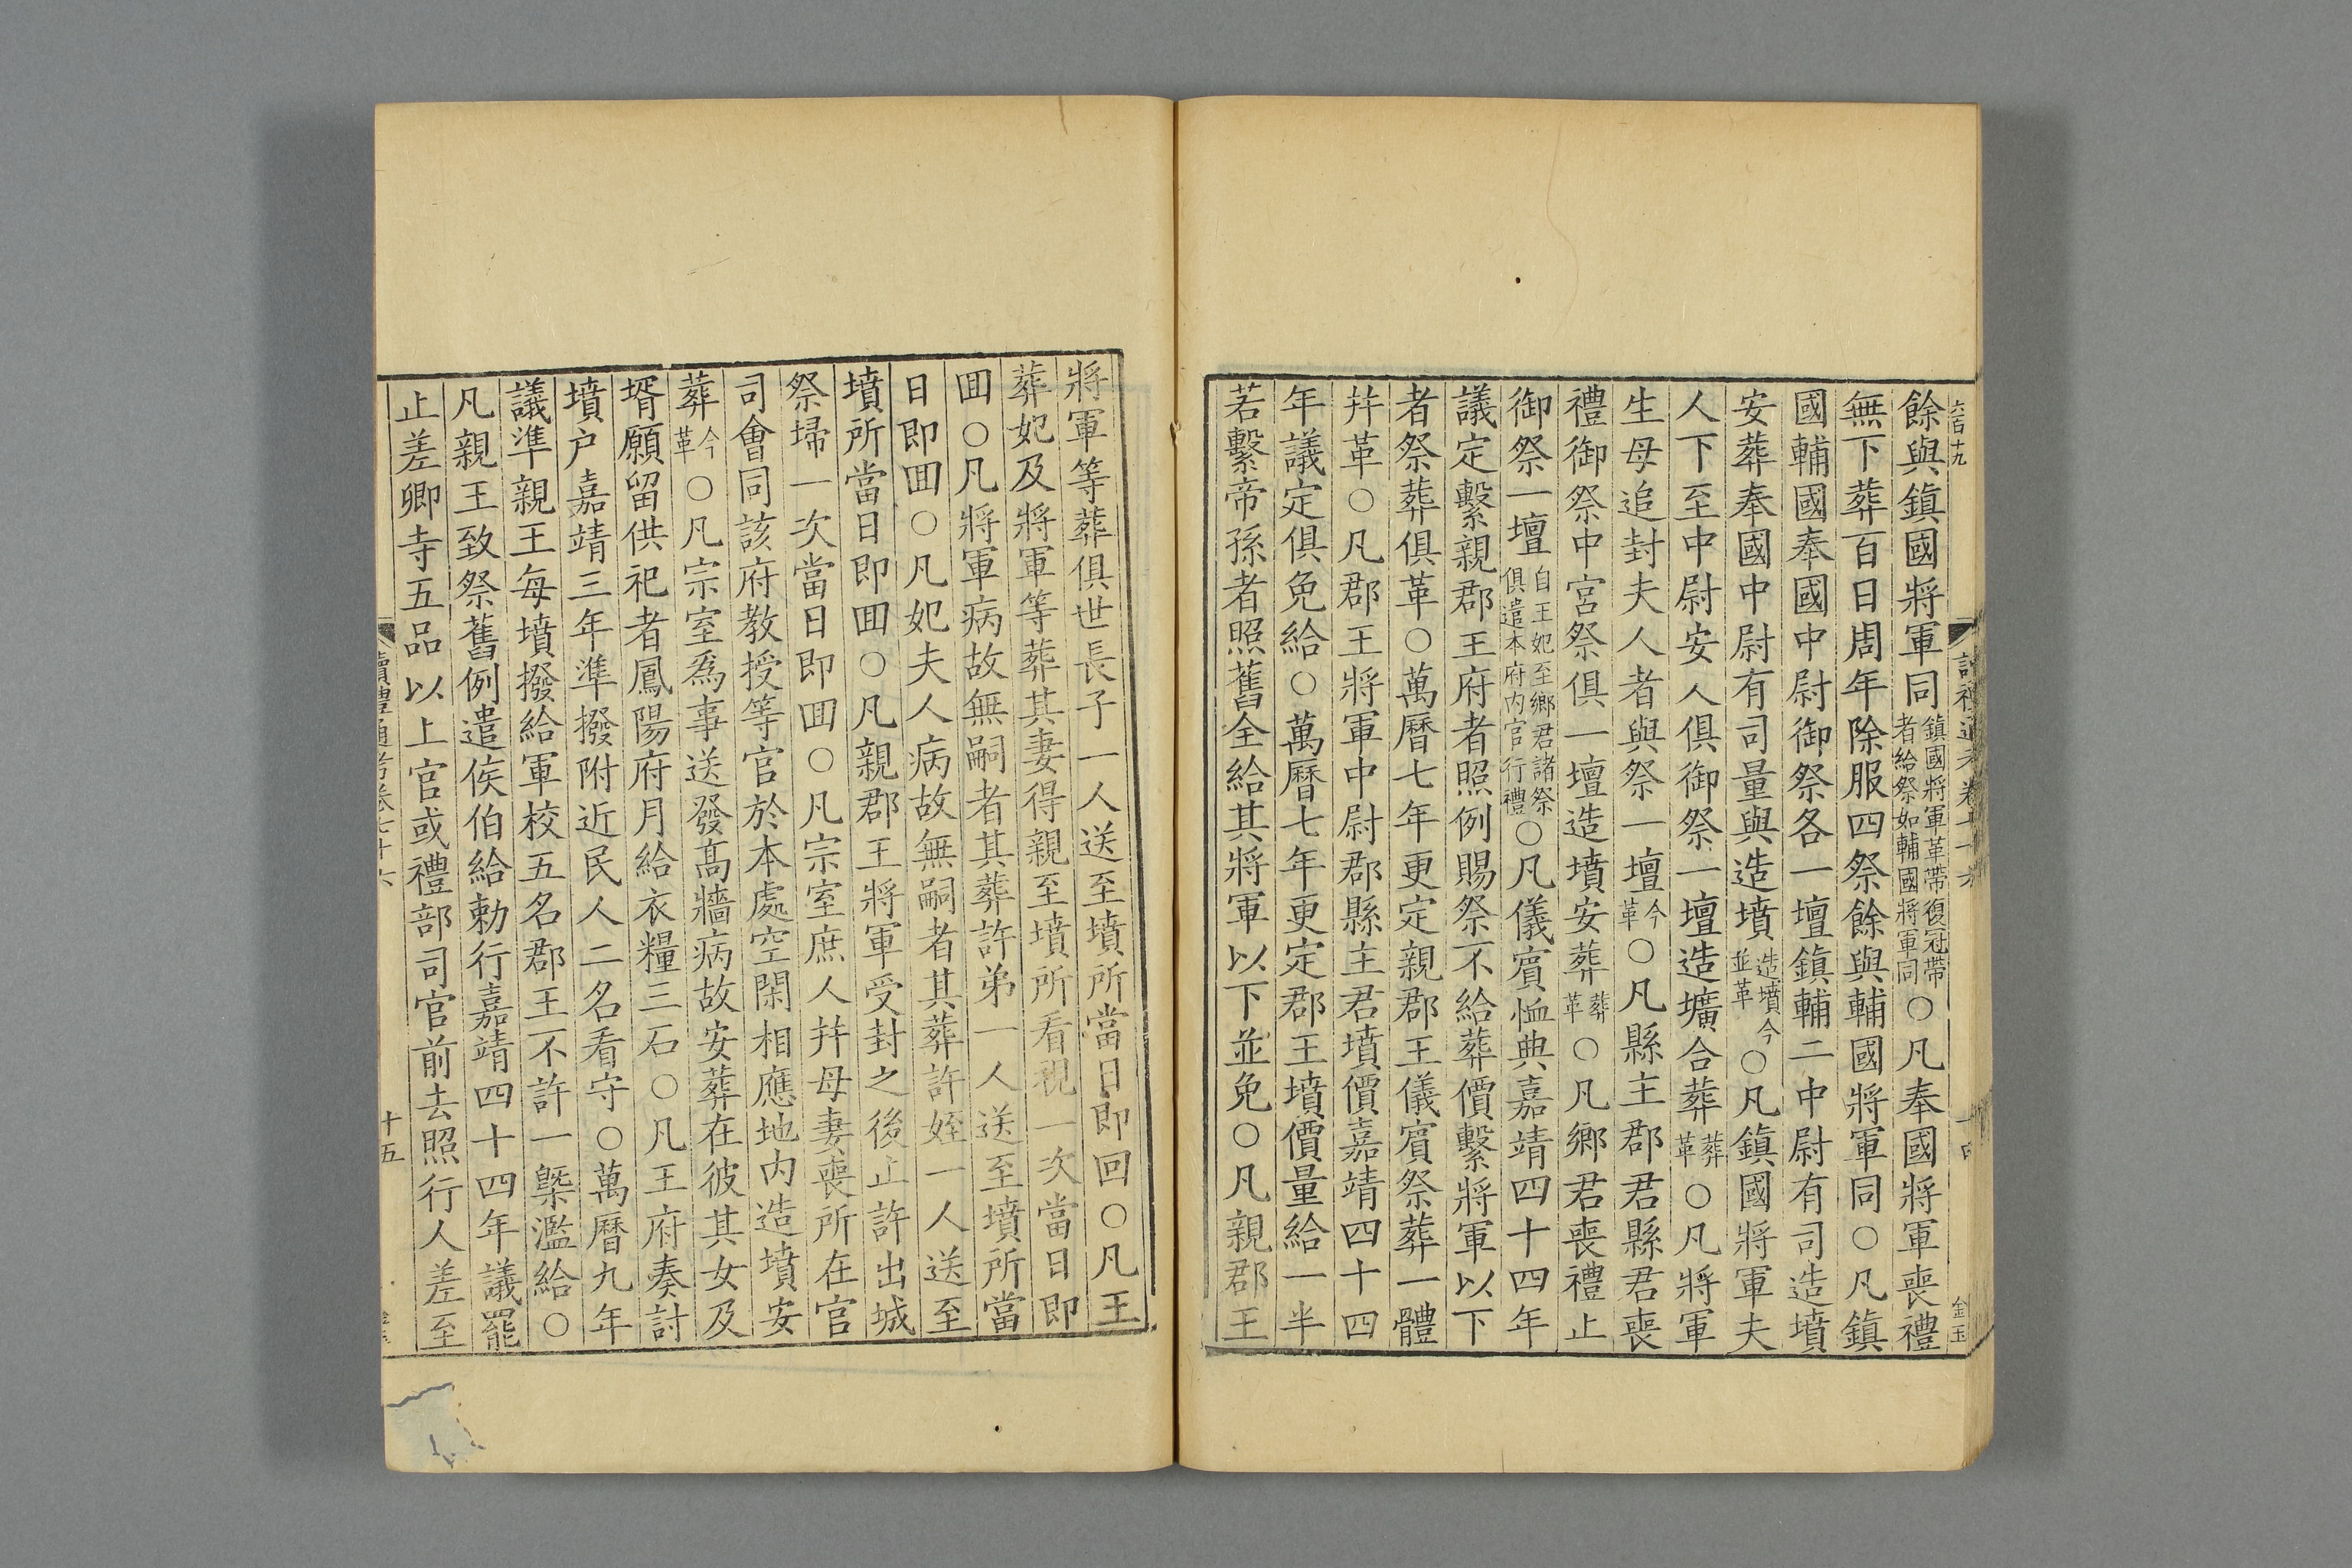 六百十九
餘與鎮國將軍同鎮國將軍革帶復冠帶者給祭如輔國將軍同○凡奉國將軍喪禮
無下葬百日周年除服四祭餘與輔國將軍同○凡鎮
國輔國奉國中尉御祭各一壇鎮輔二中尉有司造墳
安葬奉國中尉有司量與造墳造墳今並革○凡鎮國將軍夫
人下至中尉安人俱御祭一壇造壙合葬葬革○凡將軍
生母追封夫人者與祭一壇今革○凡縣主郡君縣君喪
禮御祭中宮祭俱一壇造墳安葬葬革○凡鄉君喪禮止
御祭一壇自王妃至鄉君諸祭俱遣本府內官行禮○凡儀賓恤典嘉靖四十四年
議定繫親郡王府者照例賜祭不給葬價繫將軍以下
者祭葬俱革○萬曆七年更定親郡王儀賓祭葬一體
并革○凡郡王將軍中尉郡縣主君墳價嘉靖四十四
年議定俱免給○萬曆七年更定郡王墳價量給一半
若繫帝孫者照舊全給其將軍以下並免○凡親郡王
金玉
將軍等葬俱世長子一人送至墳所當日即回○凡王
葬妃及將軍等葬其妻得親至墳所看視一次當日即
囬○凡將軍病故無嗣者其葬許弟一人送至墳所當
日即囬○凡妃夫人病故無嗣者其葬許姪一人送至
墳所當日即囬○凡親郡王將軍受封之後止許出城
祭掃一次當日即囬○凡宗室庶人并母妻喪所在官
司會同該府教授等官於本處空閑相應地內造墳安
葬今革○凡宗室為事送發高牆病故安葬在彼其女及
壻願留供祀者鳳陽府月給衣糧三石○凡王府奏討
墳户嘉靖三年準撥附近民人二名看守○萬曆九年
議準親王每墳撥給軍校五名郡王不許一槩濫給○
凡親王致祭舊例遣侯伯給勅行嘉靖四十四年議罷
止差卿寺五品以上官或禮部司官前去照行人差至
讀禮通考卷七十六
十五